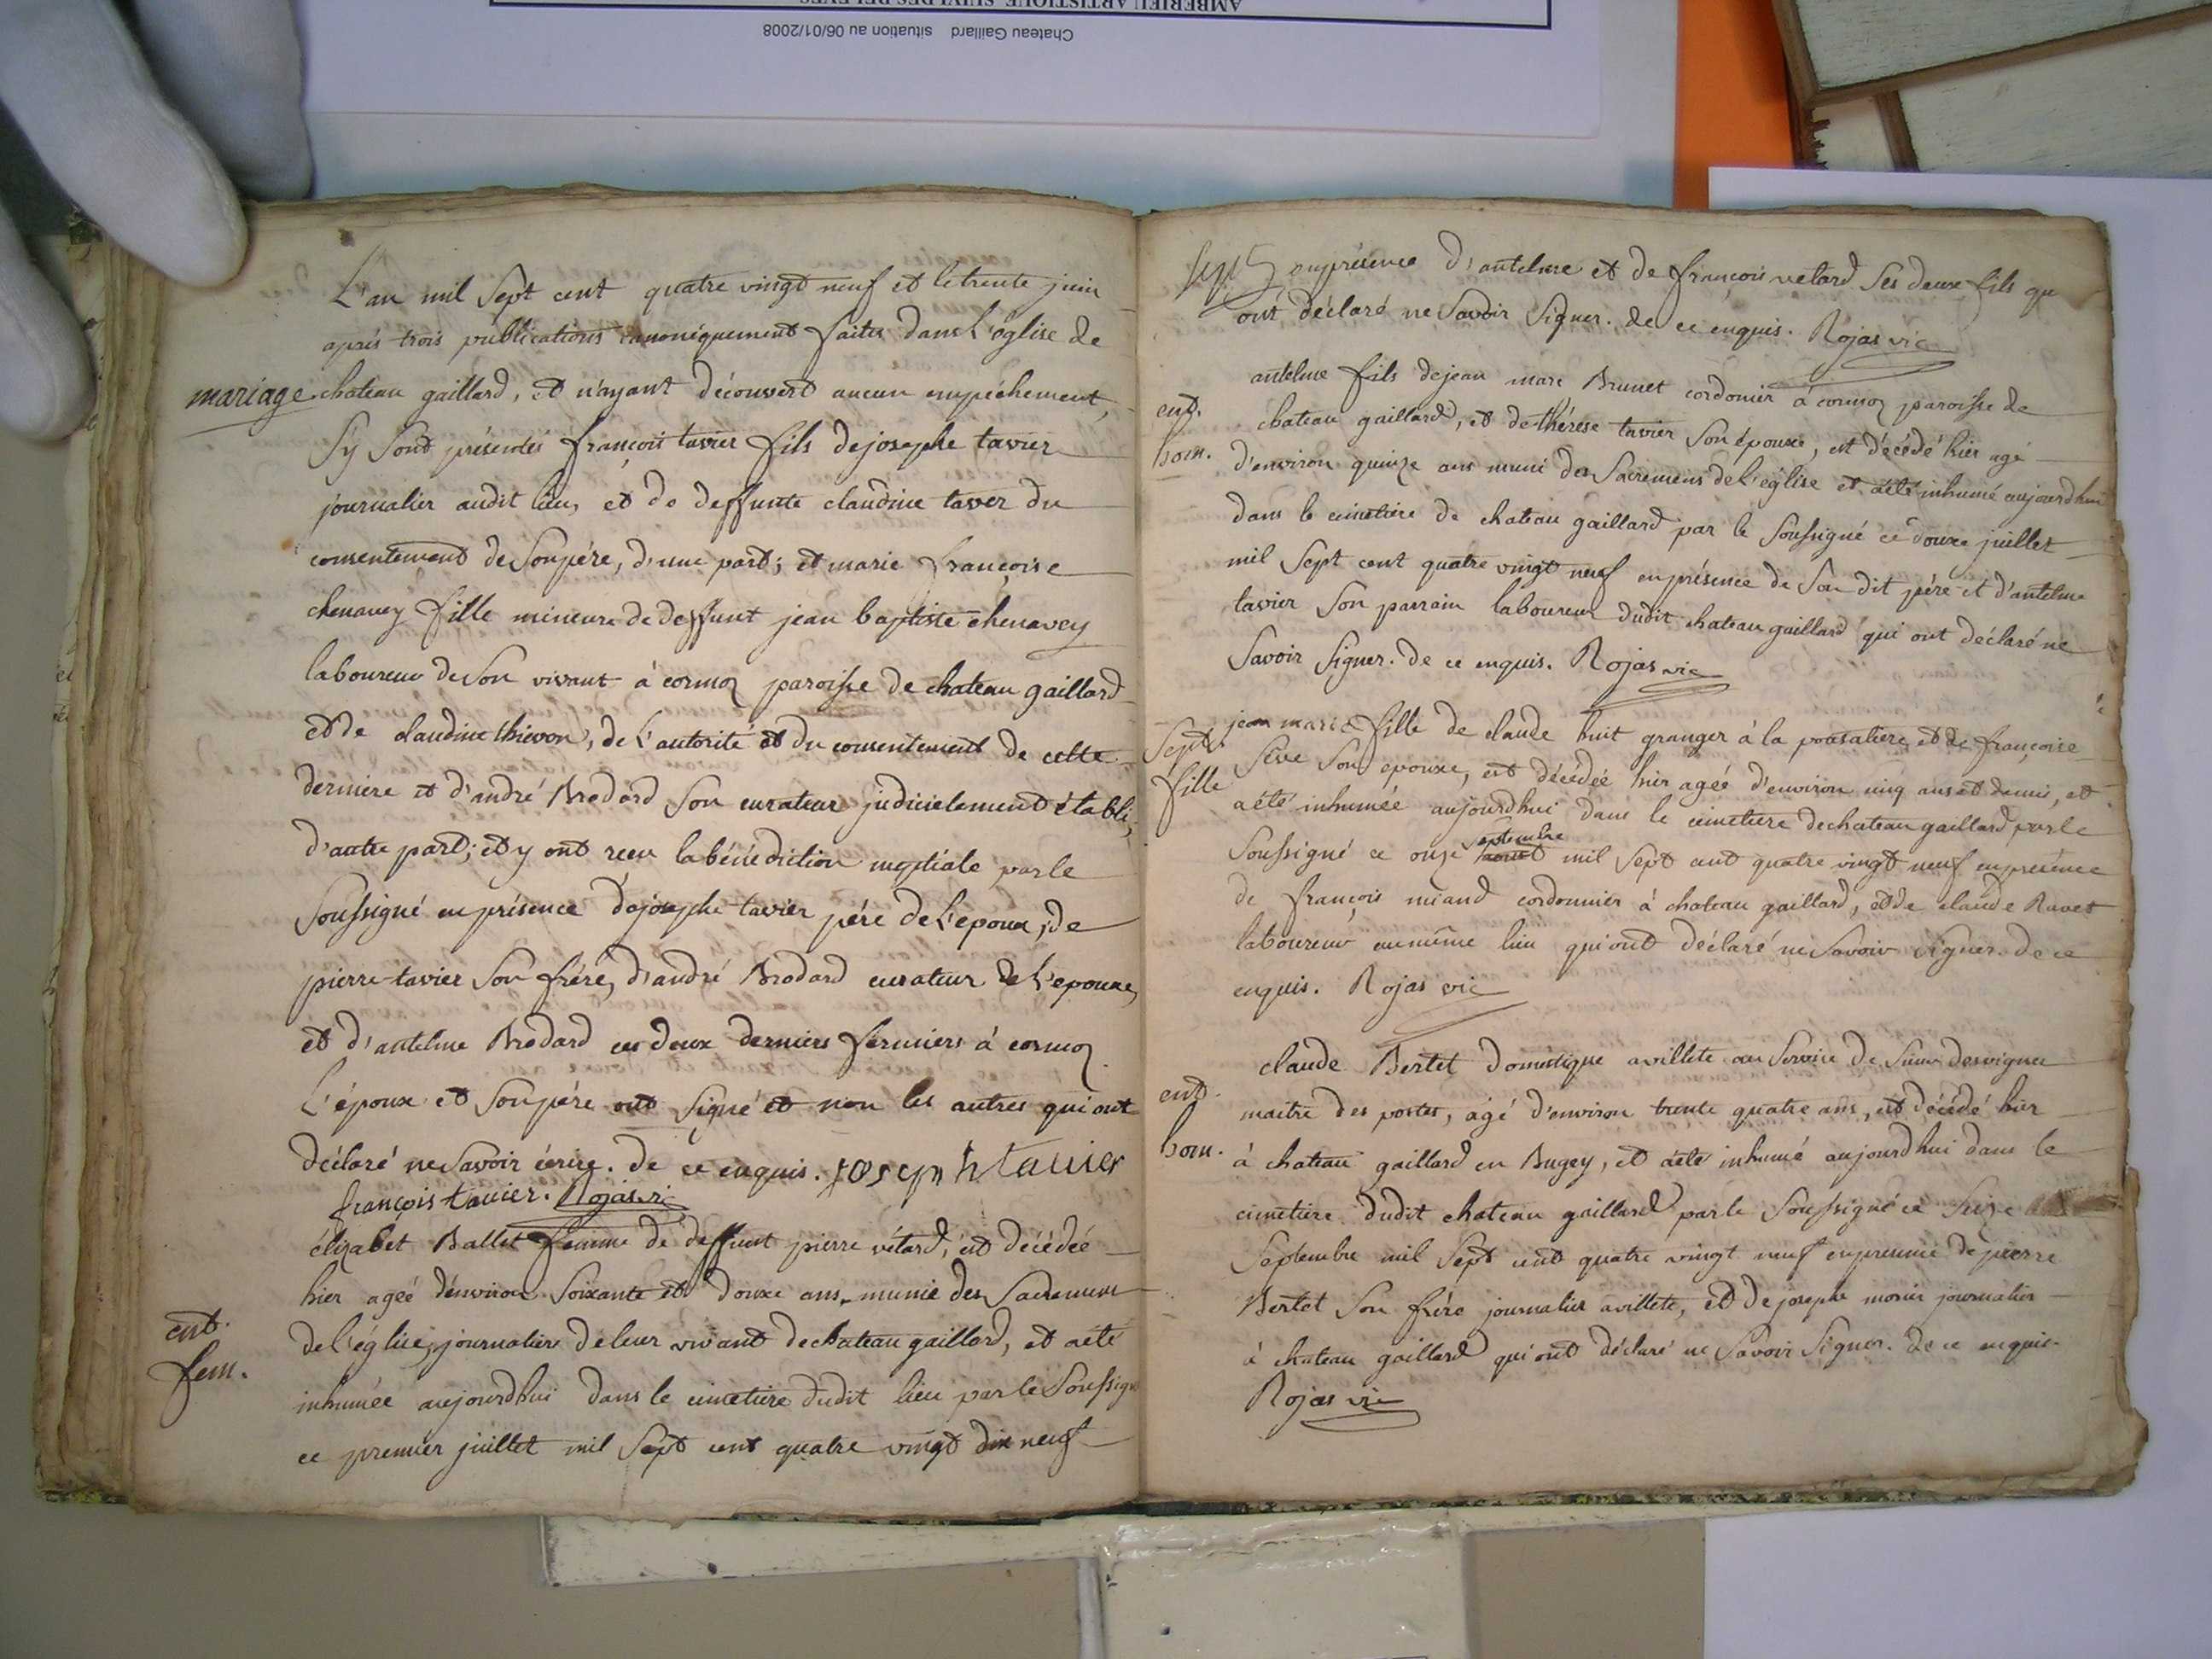 AMBERIEU ARTISTIQUE SUIVI DES RELEVES
Chateau Gaillard situation au 06/01/2008
L'an mil Sept cent quatre vingt neuf et le trente juin
aprés trois publications canoniquement faites dans l'église de
mariage chateau gaillard, et n'ayant découvert aucun empéchement,
S'y Sont présentés françois tavier fils de josephe tavier
journalier audit lieu, et de deffunte claudine taver du
consentement de Son pére, d'une part; et marie françoise
chenavey fille mineure de deffunt jean baptiste chenavey
laboureur de Son vivant à cormoz paroisse de chateau gaillard
et de claudine thievon, de l'autorité et du consentement de cette
derniére et d'andré Brodard Son curateur judicielement établi,
d'autre part; et y ont reçu la bénédiction nuptiale par le
Soussigné en présence de josephe tavier pére de l'epoux, de
pierre tavier Son frére, d'andré Brodard curateur de l'epouxe,
et d'antelme Brodard ces deux derniers fermiers à cormoz
L'époux et Son pére ont Signé et non les autres qui ont
déclaré ne Savoir écrire. de ce enquis. joseph tavier
françois tavier. Rojas vic
ent.
fem.
élizabét Ballet femme de deffunt pierre vétard, est décédée
hier agée d'environ Soixante et douxe ans, munie des Sacremens
de l'église, journaliers de leur vivant de chateau gaillard, et a été
inhumée aujourdhui dans le cimetiere dudit lieu par le Soussigné
ce premier juillet mil Sept cent quatre vingt dix neuf
en présence d'antelme et de françois vetard Ses deux fils qui
ont déclaré ne Savoir Signer. de ce enquis. Rojas vic
ent.
hom.
antelme fils de jean marc Brunet cordonier à cormoz paroisse de
chateau gaillard, et de thérèse tavier Son épouxe, est décédé hier agé
d'environ quinze ans muni des Sacremens de l'église et a été inhumé aujourdhui
dans le cimetiere de chateau gaillard par le Soussigné ce douxe juillet
mil Sept cent quatre vingt neuf en présence de Son dit pére et d'antelme
tavier Son parrain laboureur dudit chateau gaillard qui ont déclaré ne
Savoir Signer. de ce enquis. Rojas vic
Sept.
fille
jean marie fille de claude huit granger à la pousatiere et de françoise
Seve Son epouxe, est décédée hier agée d'environ cinq ans et demi, et
a été inhumée aujourdhui dans le cimetiere de chateau gaillard par le
septembre
Soussigné ce onze aout mil Sept cent quatre vingt neuf en presence
de françois miand cordonnier à chateau gaillard, et de claude Ravet
laboureur au même lieu qui ont déclaré ne Savoir Signer. de ce
enquis. Rojas vic
ent.
hom.
claude Bertet domestique a villete au Service de Sieur desvignes
maitre des postes, agé d'environ trente quatre ans, est décédé hier
à chateau gaillard en Bugey, et a été inhumé aujourdhui dans le
cimetiere dudit chateau gaillard par le Soussigné ce Seize
Septembre mil Sept cent quatre vingt neuf en presence de pierre
Bertet Son frére journalier a villete, et de josephe monin journalier
à chateau gaillard qui ont déclaré ne Savoir Signer. de ce enquis.
Rojas vic